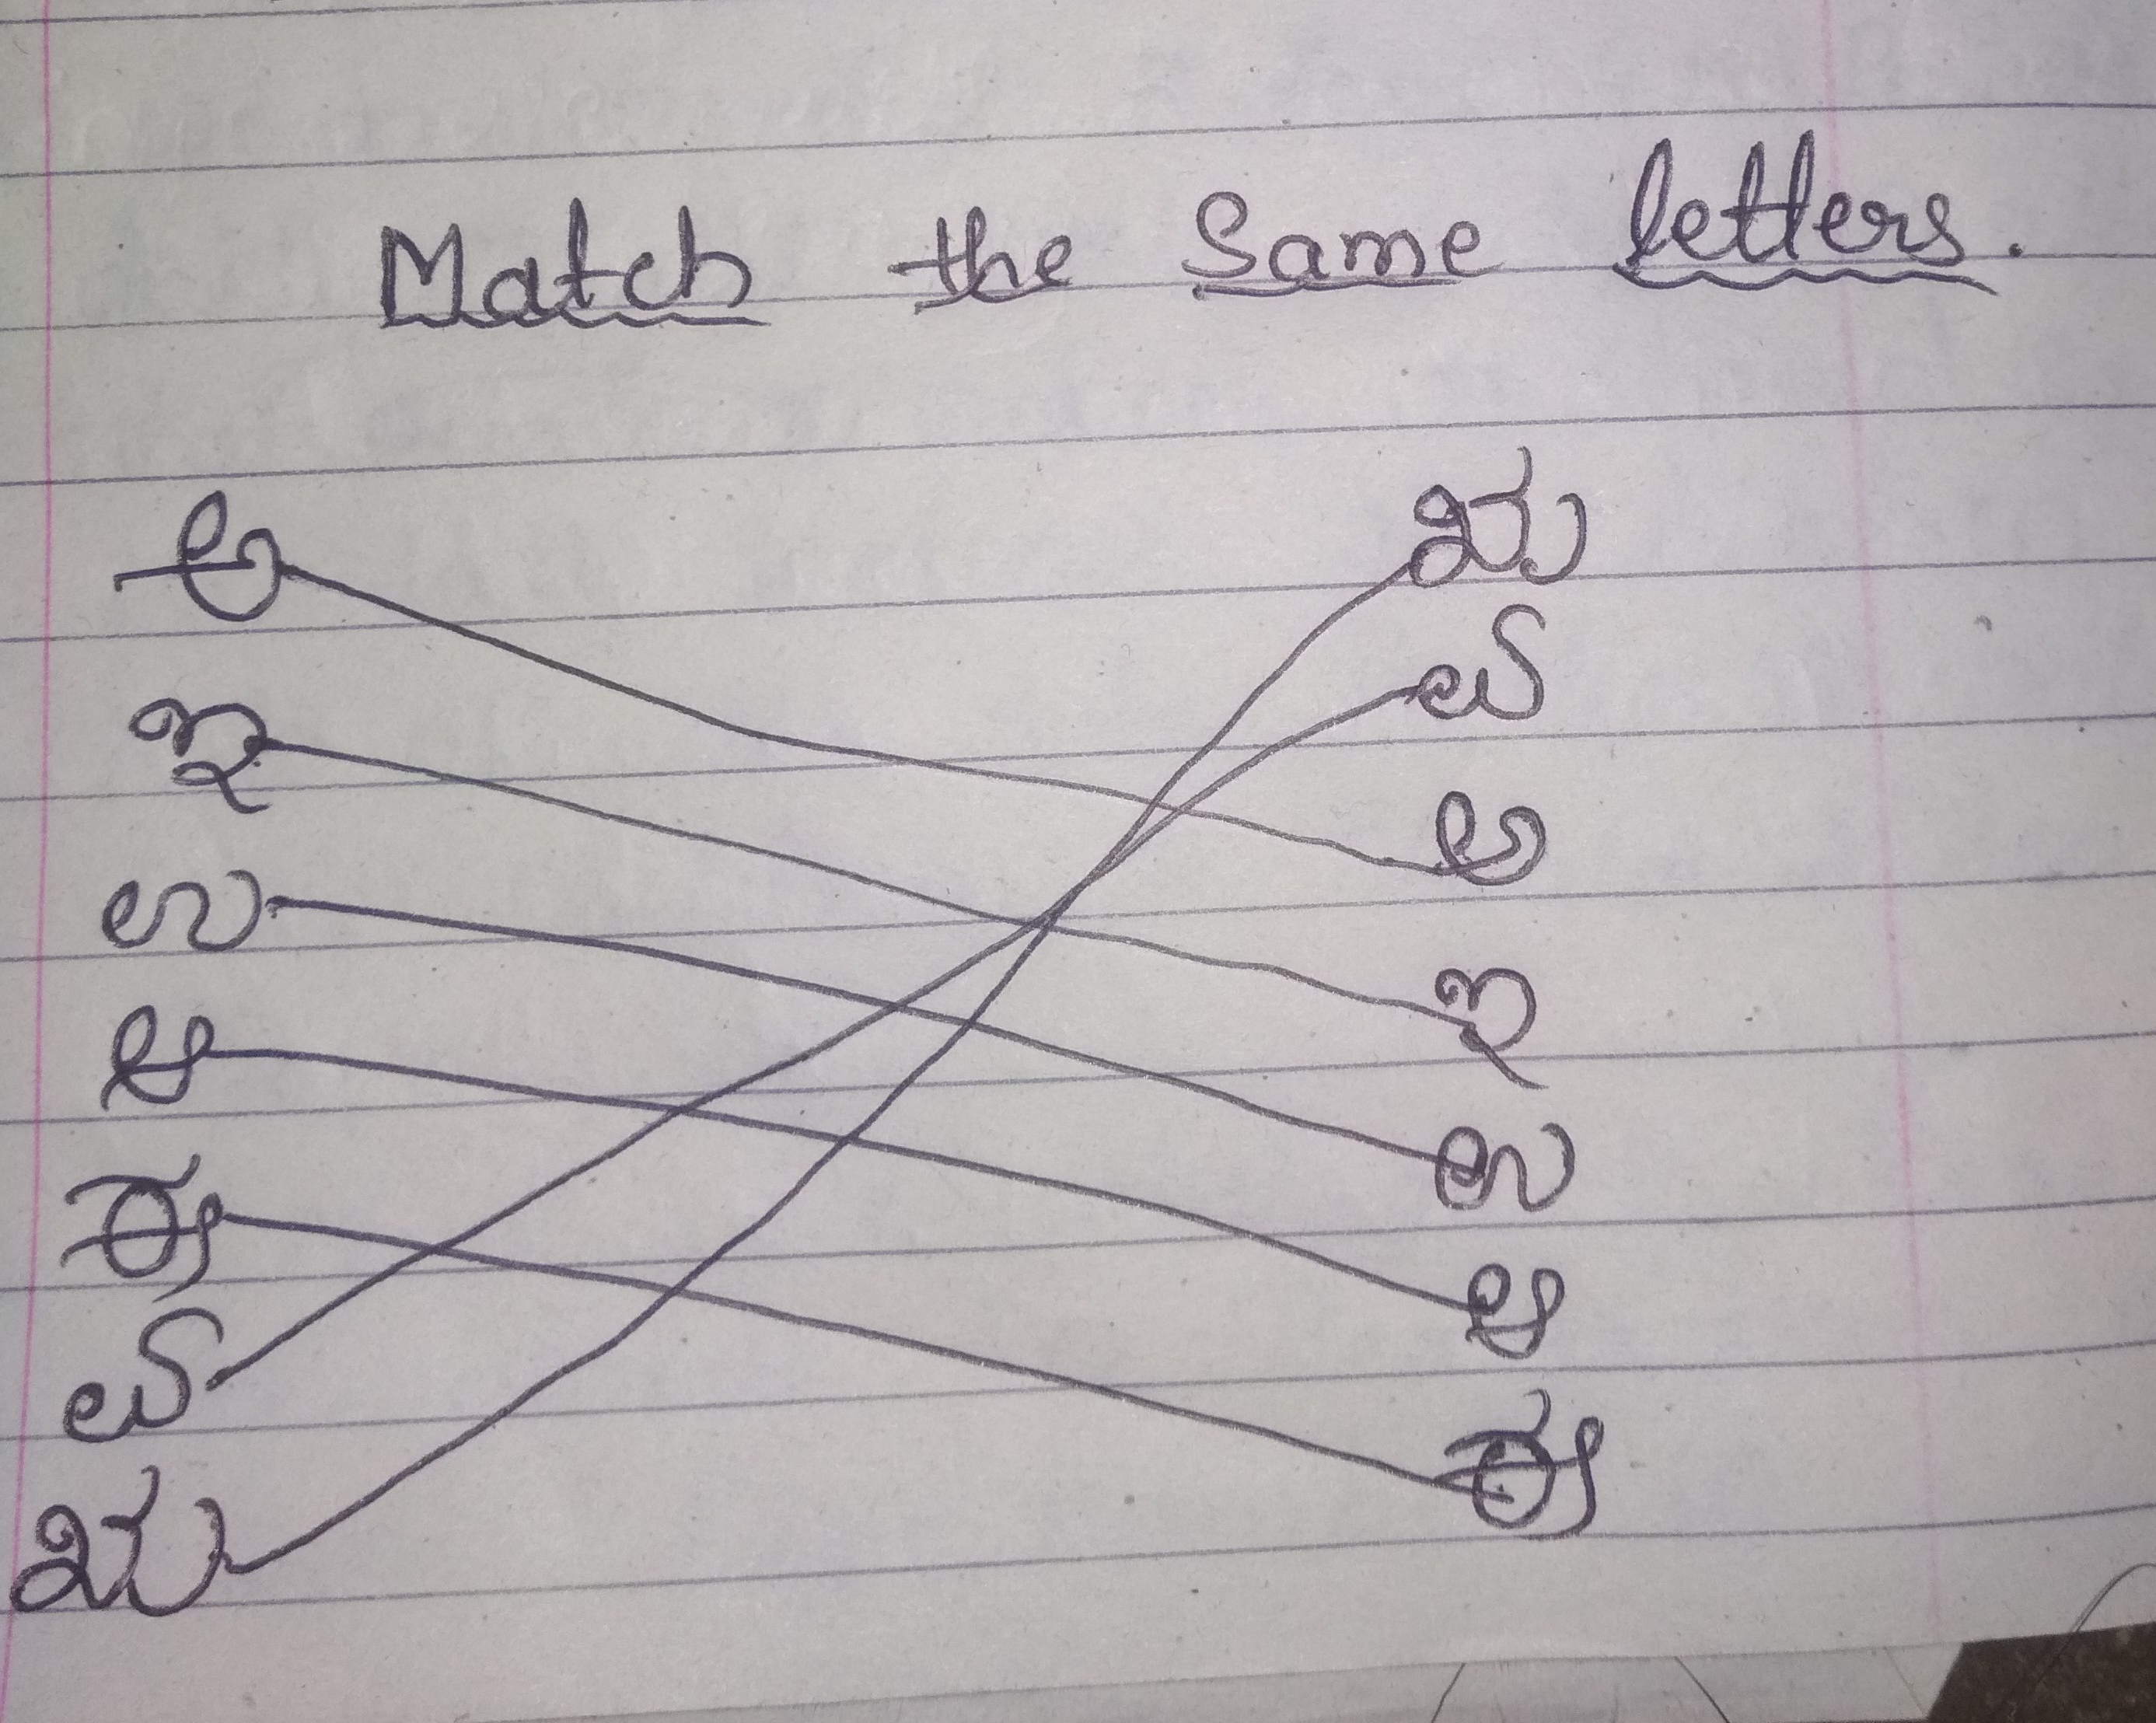 Match the Same letters.
ಅ ಋ
ಇ ಎ
ಉ ಅ
ಆ ಇ
ಈ ಉ
ಎ ಆ
ಋ ಈ